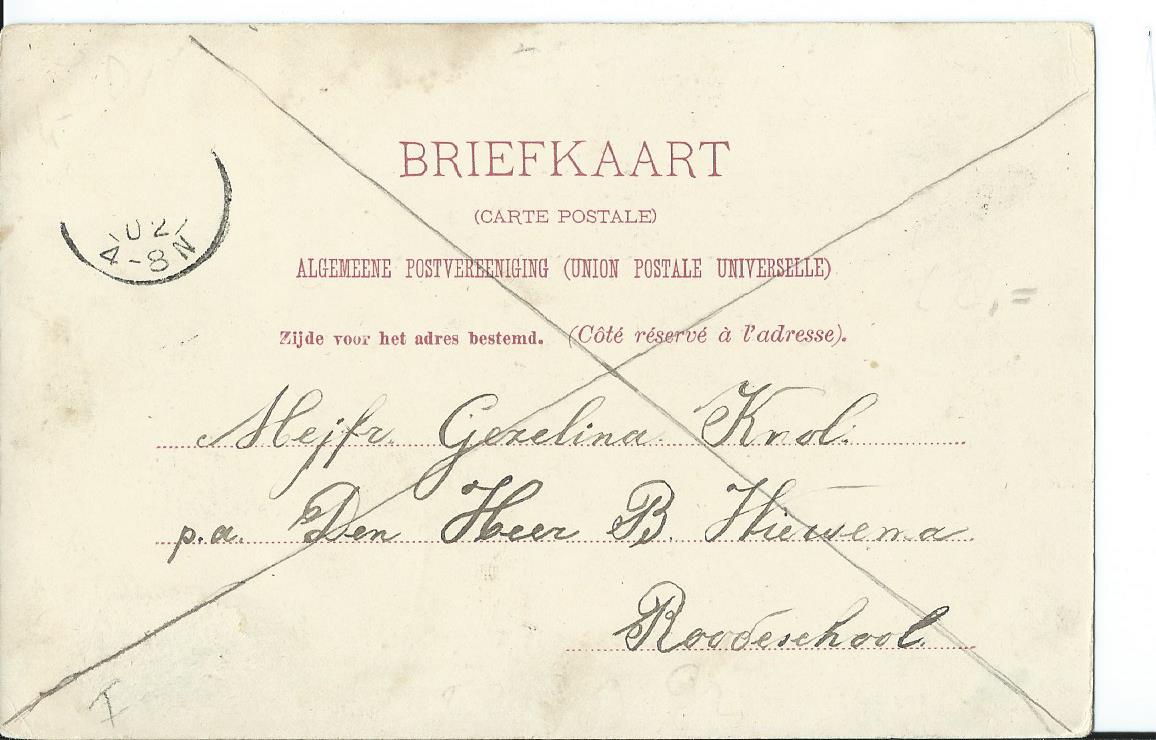 BRIEFKAART
(CARTE POSTALE)
ALGEMEENE POSTVEREENIGING (UNION POSTALE UNIVERSELLE)
02
4-8 N
Zijde voor het adres bestemd. (Côté réservé à l'adresse).
Mejfr. Gezelina Knol.
p.a. Den Heer B. Wiersema
Roodeschool.
I